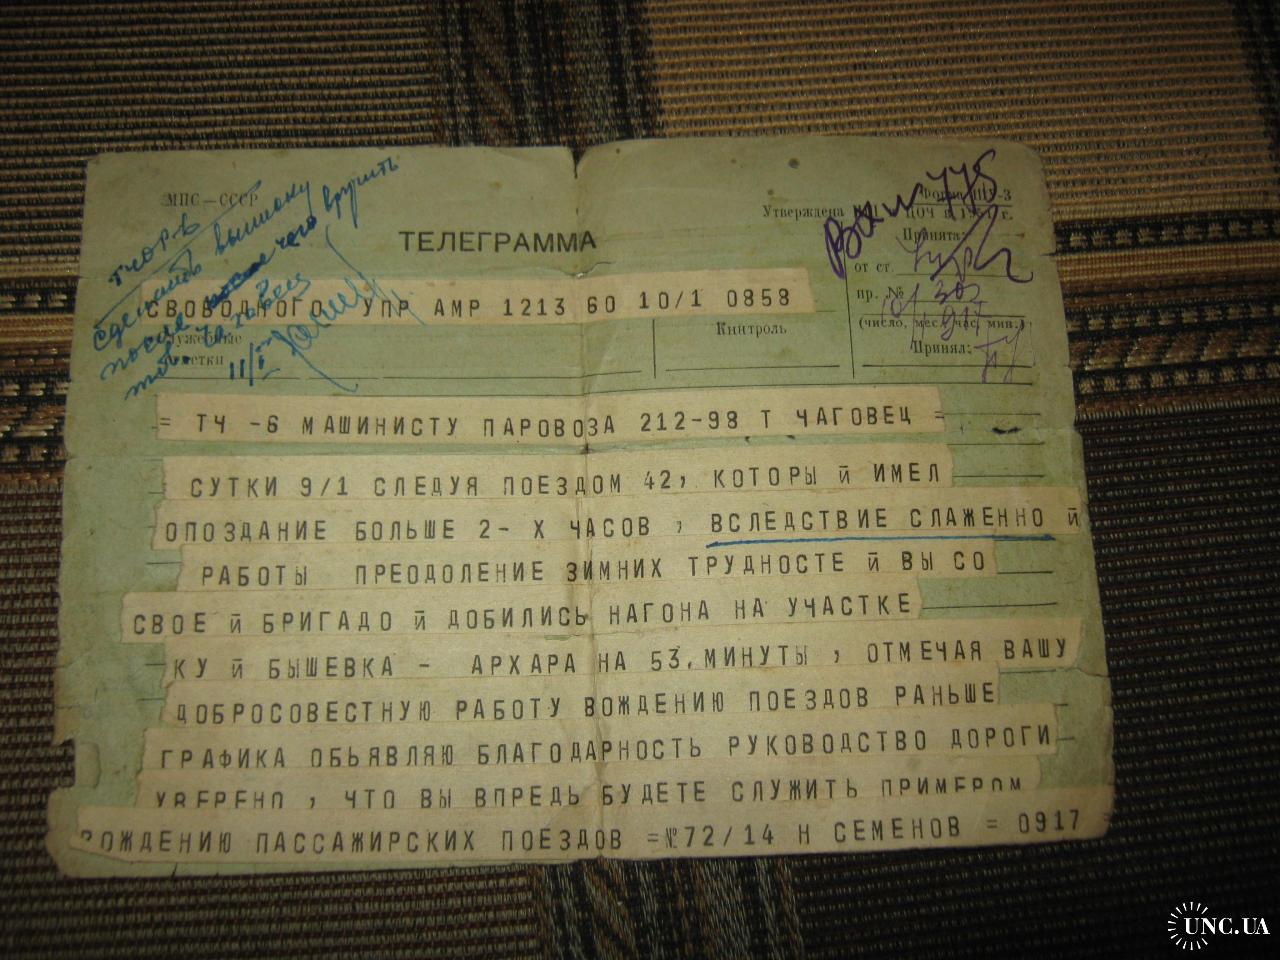 МПС—СССР
ТЕЛЕГРАММА
Утверждена
ЦОЧ в 195 г.
Принята:
от ст.
пр. № 302
(число, мес., час, мин.)
Принял:
тчор-в
сделать выписку
после чего вручить
тов.
11/I
СВОБОДНОГО УПР АМР 1213 60 10/1 0858
Служебные
отметки
Книтроль
= ТЧ -6 МАШИНИСТУ ПАРОВОЗА 212-98 Т ЧАГОВЕЦ =
СУТКИ 9/1 СЛЕДУЯ ПОЕЗДОМ 42, КОТОРЫ Й ИМЕЛ
ОПОЗДАНИЕ БОЛЬШЕ 2- Х ЧАСОВ , ВСЛЕДСТВИЕ СЛАЖЕННО Й
РАБОТЫ ПРЕОДОЛЕНИЕ ЗИМНИХ ТРУДНОСТЕ Й ВЫ СО
СВОЕ Й БРИГАДО Й ДОБИЛИСЬ НАГОНА НА УЧАСТКЕ
КУ Й БЫШЕВКА - АРХАРА НА 53. МИНУТЫ , ОТМЕЧАЯ ВАШУ
ДОБРОСОВЕСТНУЮ РАБОТУ ВОЖДЕНИЮ ПОЕЗДОВ РАНЬШЕ
ГРАФИКА ОБЬЯВЛЯЮ БЛАГОДАРНОСТЬ РУКОВОДСТВО ДОРОГИ
УВЕРЕНО , ЧТО ВЫ ВПРЕДЬ БУДЕТЕ СЛУЖИТЬ ПРИМЕРОМ
ВОЖДЕНИЮ ПАССАЖИРСКИХ ПОЕЗДОВ =№72/14 Н СЕМЕНОВ = 0917
UNC.UA